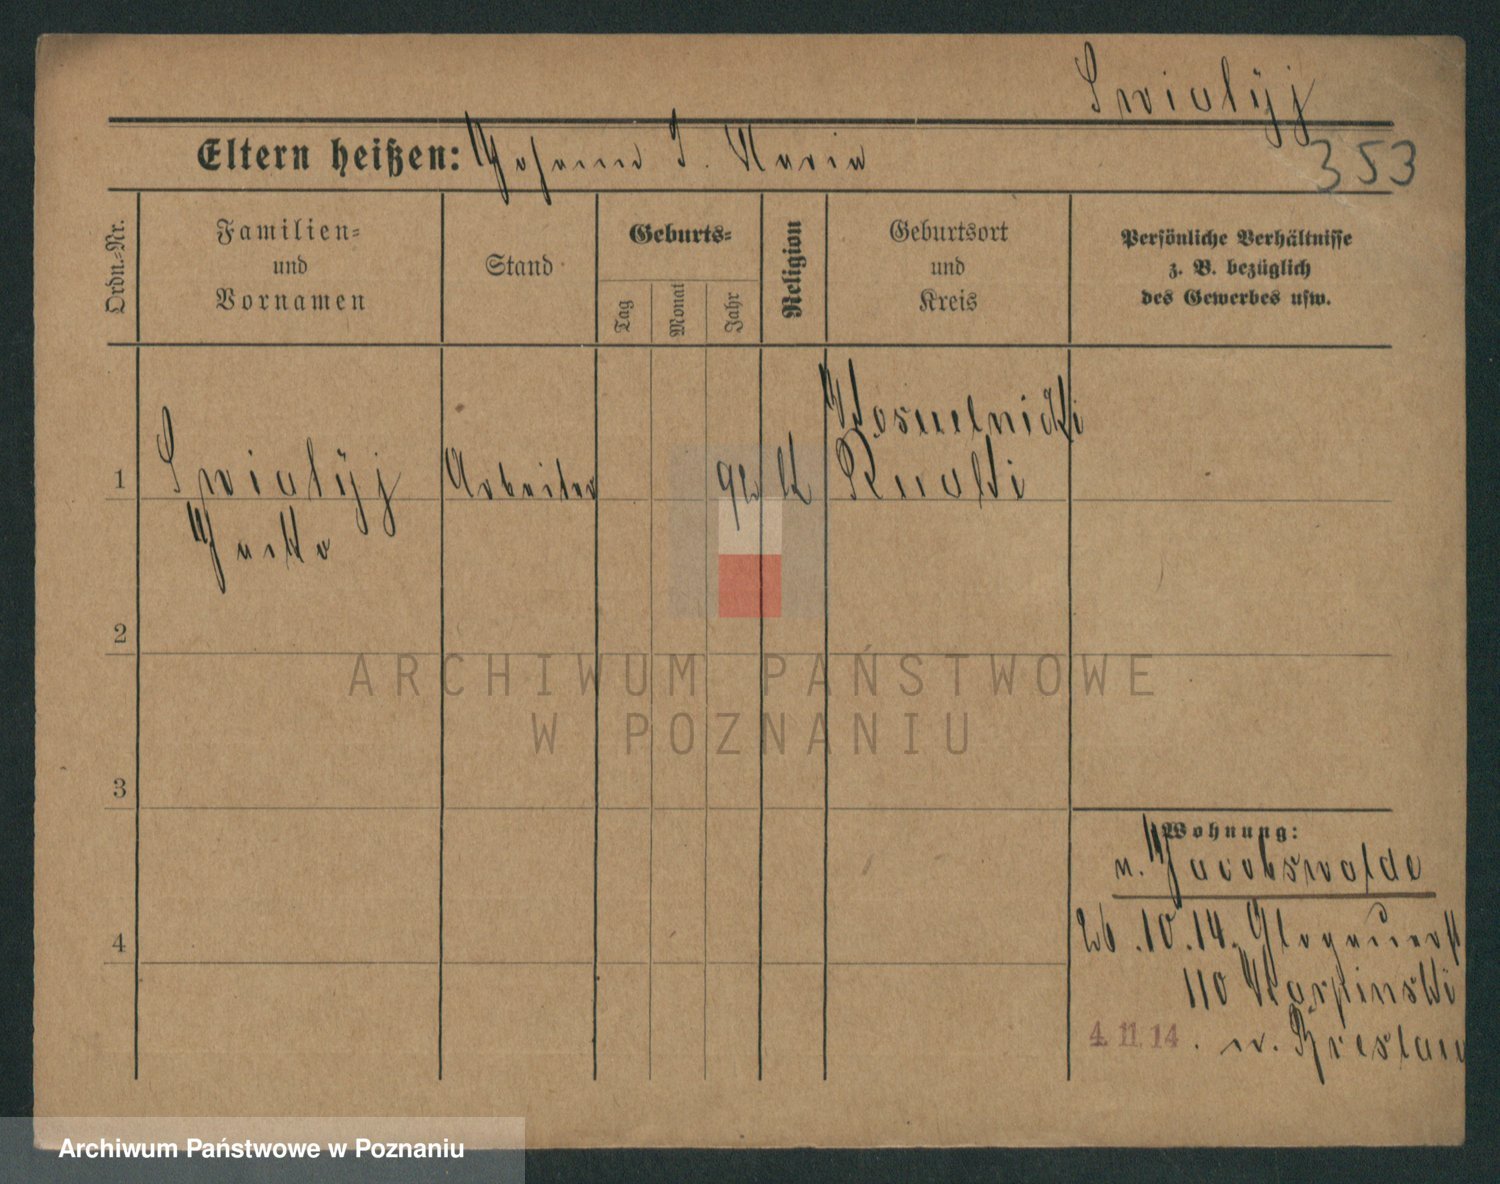 Swiatyj
Eltern heißen: Johann J. Maria
353
Ordn.-Nr.
Familien-
und
Vornamen
Stand
Geburts-
Tag
Monat
Jahr
Religion
Geburtsort
und
Kreis
Persönliche Verhältnisse
z. B. bezüglich
des Gewerbes usw.
1
Swiatyj
Arbeiter
92
2
3
4
Wohnung:
n. Jacobswalde
26.10.14. Glogauerst
110 Karpinski
4. 11. 14. n. Breslau
ARCHIWUM PAŃSTWOWE
W POZNANIU
Archiwum Państwowe w Poznaniu